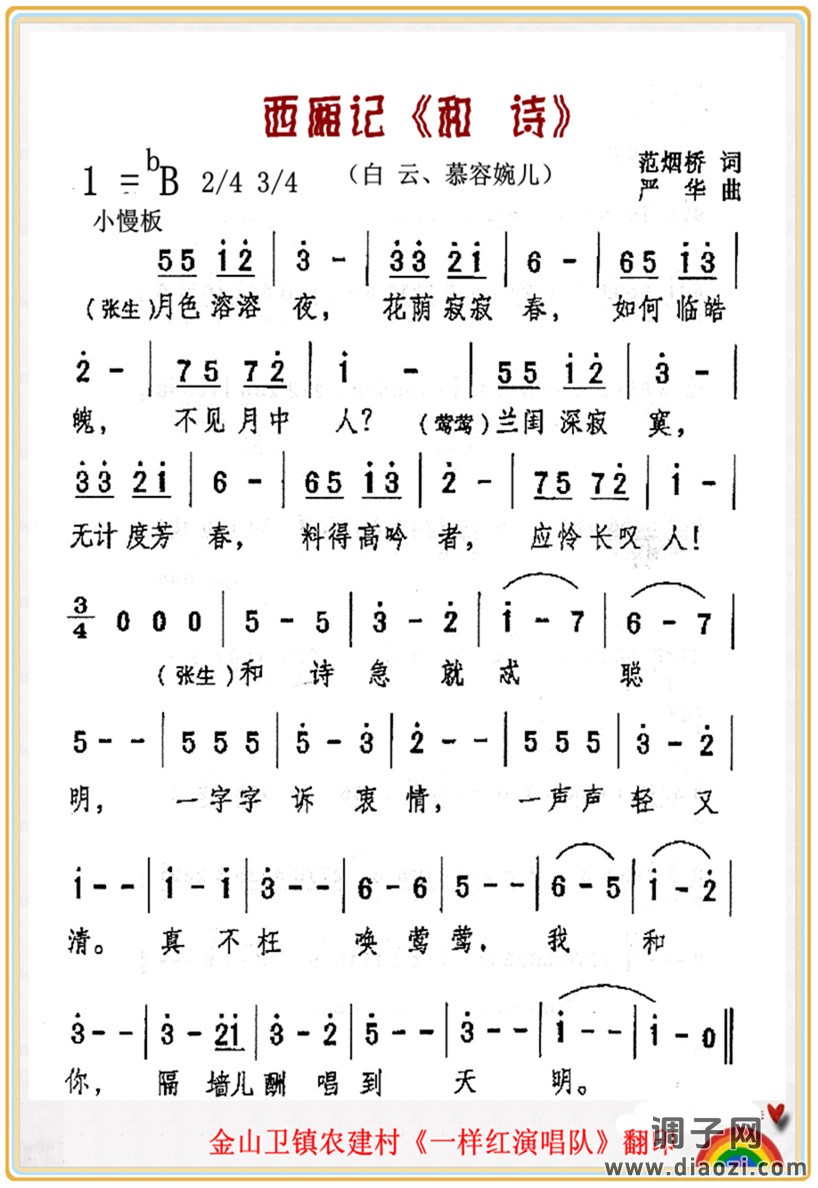 西厢记《和 诗》
1 = ᵇB 2/4 3/4 （白 云、慕容婉儿） 范烟桥 词
严 华 曲
小慢板
5 5 i̇ 2̇ | 3̇ - | 3̇ 3̇ 2̇ i̇ | 6 - | 6 5 i̇ 3̇ |
（张生）月色溶溶 夜， 花荫寂寂 春， 如何临皓
2̇ - | 7 5 7 2̇ | i̇ - | 5 5 i̇ 2̇ | 3̇ - |
魄， 不见月中 人？（莺莺）兰闺深寂 寞，
3̇ 3̇ 2̇ i̇ | 6 - | 6 5 i̇ 3̇ | 2̇ - | 7 5 7 2̇ | i̇ - |
无计度芳 春， 料得高吟 者， 应怜长叹 人！
3/4 0 0 0 | 5 - 5 | 3̇ - 2̇ | i̇ - 7 | 6 - 7 |
（张生）和 诗 急 就 忒 聪
5 - - | 5 5 5 | 5̇ - 3̇ | 2̇ - - | 5 5 5 | 3̇ - 2̇ |
明， 一字字 诉 衷 情， 一声声 轻 又
i̇ - - | i̇ - i̇ | 3̇ - - | 6 - 6 | 5 - - | 6 - 5 | i̇ - 2̇ |
清。 真 不 枉 唤 莺 莺， 我 和
3̇ - - | 3̇ - 2̇ i̇ | 3̇ - 2̇ | 5̇ - - | 3̇ - - | i̇ - - | i̇ - 0 ‖
你， 隔 墙儿 酬 唱 到 天 明。
金山卫镇农建村《一样红演唱队》翻印
调子网
www.diaozi.com